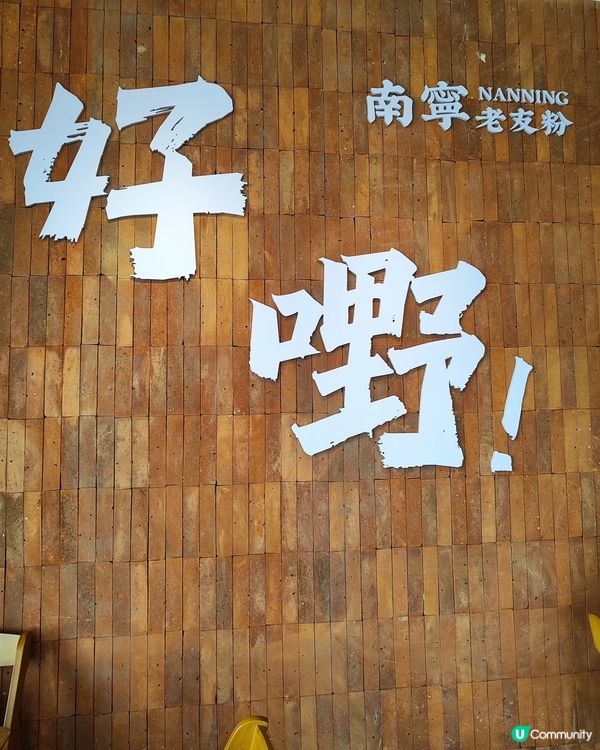 好
嘢!
南寧
NANNING
老友粉
U Community